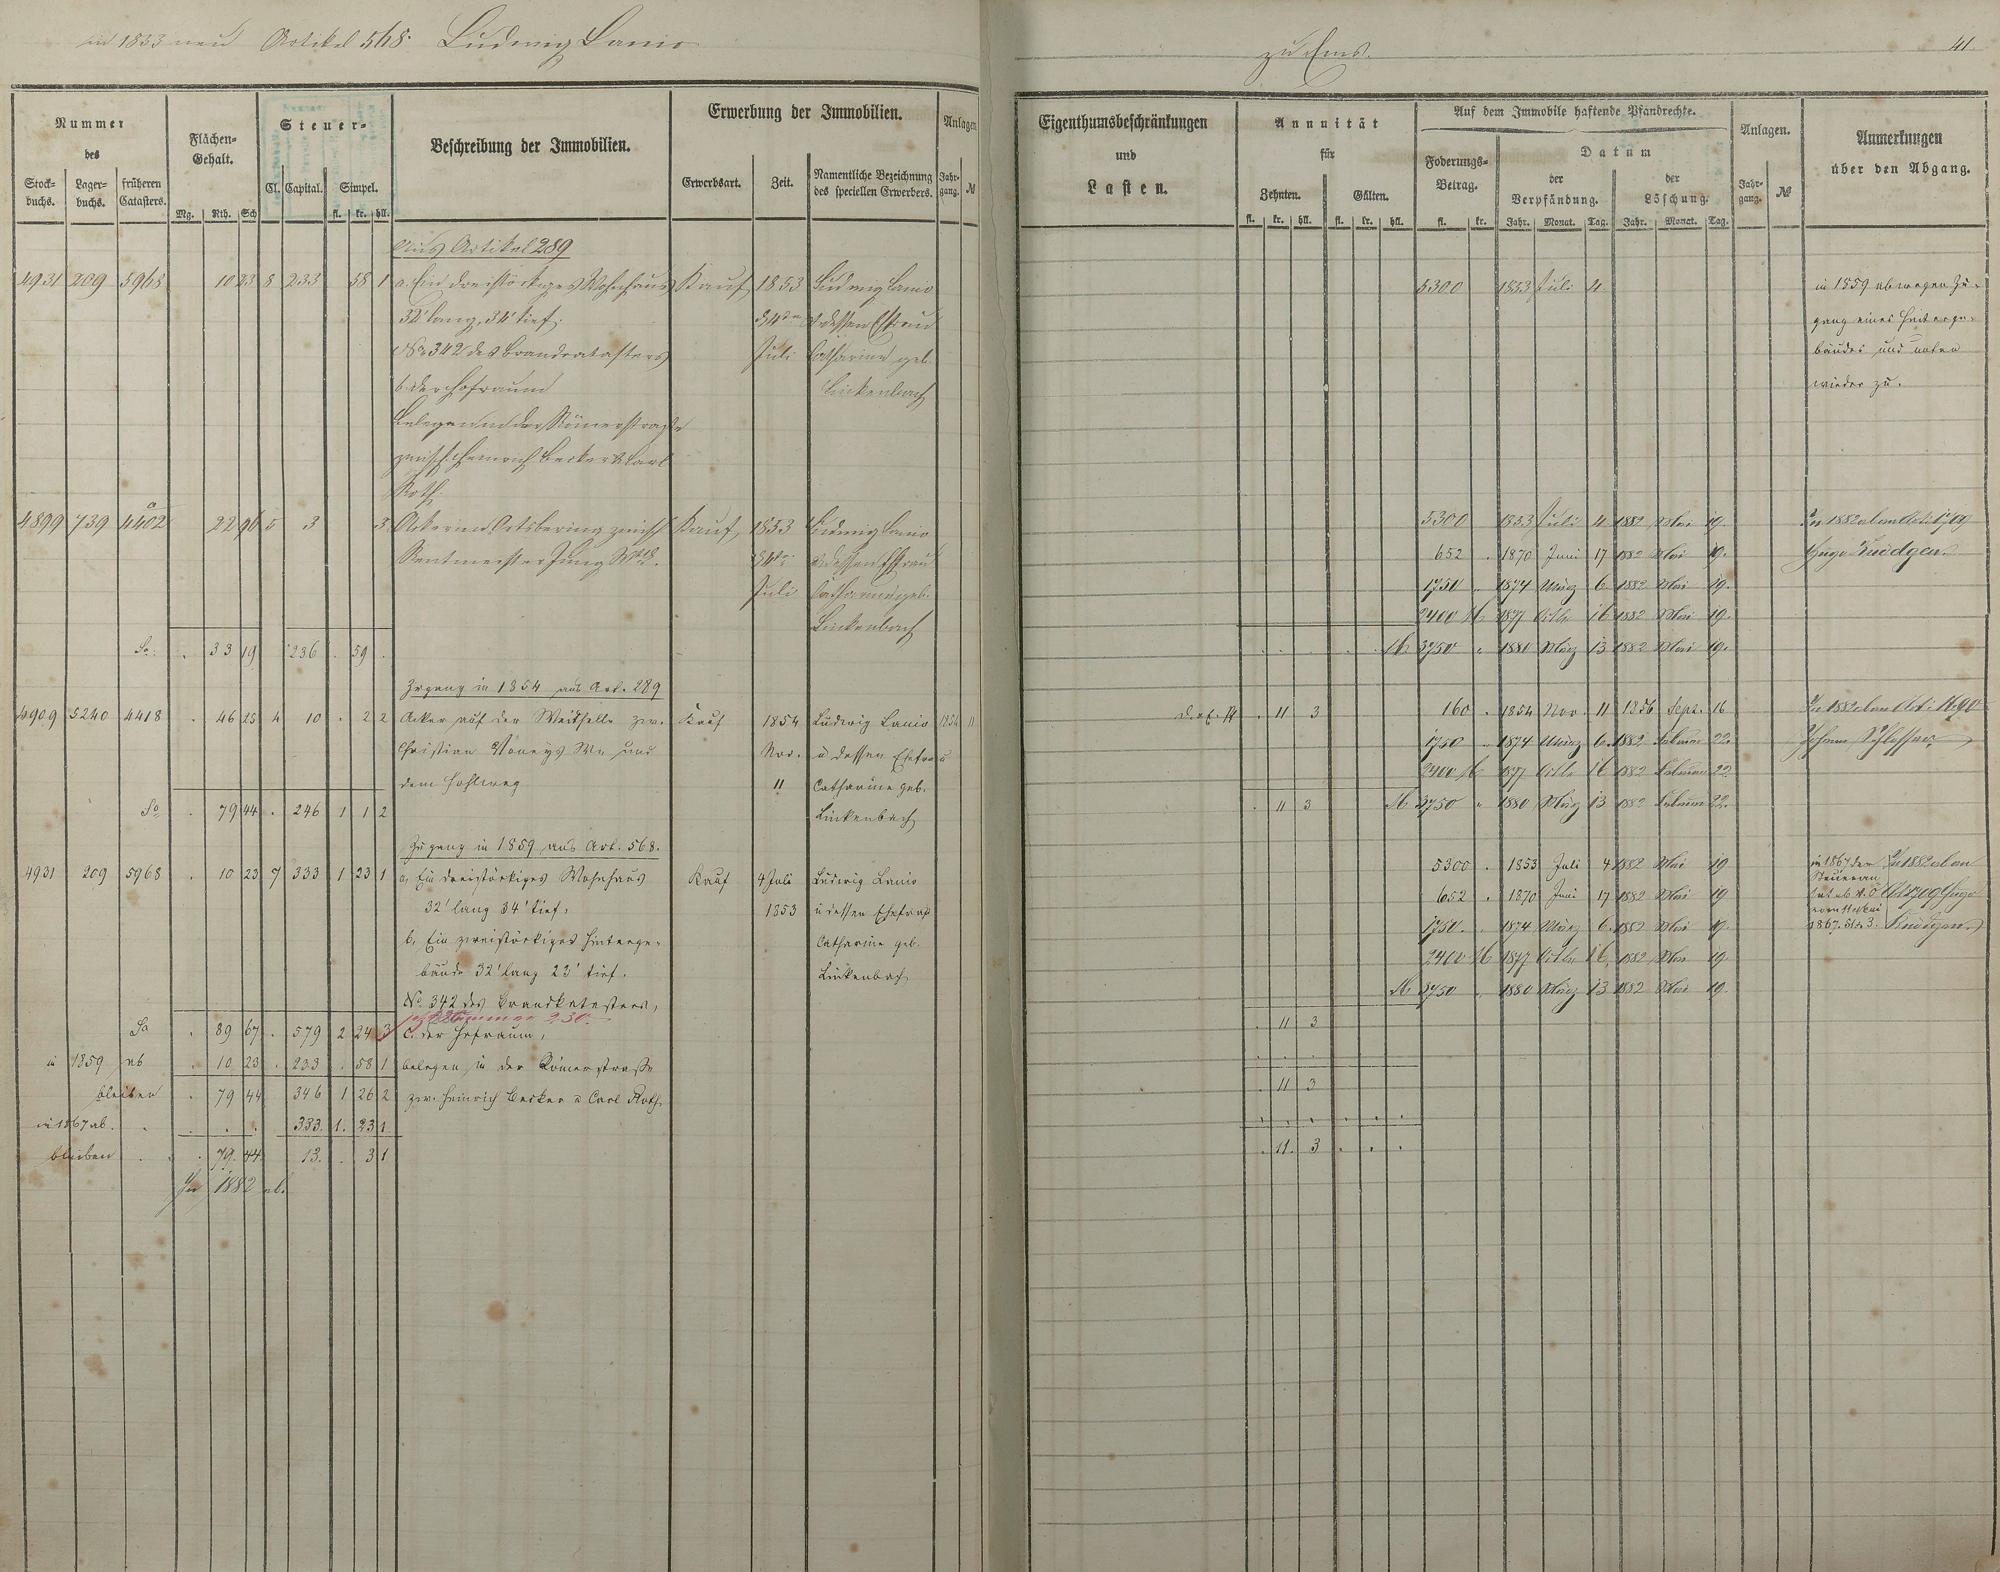 in 1853 neu Artikel 568. Ludwig Lanio
zu Ems.
41.
Nummer des
Stock-buchs. Lager-buchs. früheren Catasters.
Flächen-Gehalt.
Mg. Rth. Sch
Steuer-
Cl. Capital. Simpel.
fl. kr. hll.
Beschreibung der Immobilien.
Erwerbung der Immobilien.
Erwerbsart. Zeit. Namentliche Bezeichnung des speciellen Erwerbers.
Anlagen
Jahr-gang. №
Eigenthumsbeschränkungen
und
Lasten.
Annuität
für
Zehnten. Gülten.
fl. kr. hll. fl. kr. hll.
Auf dem Immobile haftende Pfandrechte.
Foderungs-Betrag.
fl. kr.
Datum
der Verpfändung. der Löschung.
Jahr. Monat. Tag. Jahr. Monat. Tag.
Anlagen.
Jahr-gang. №
Anmerkungen
über den Abgang.
Aus Artikel 289
4931 209 5968 10 23 8 233 58 1 a. Ein dreistöckiges Wohnhaus Kauf 1853 Ludwig Lanio 5300 1853 Juli 4 in 1859 ab wegen Zu-
32' lang, 34' tief. d. 4ten & dessen Ehefrau gang eines Hinterge-
No 342 des Brandcatasters Juli Catharine geb. bäudes und unten
b. der Hofraum Linkenbach wieder zu.
Belegen in der Römerstraße
zwisch. Heinrich Becker & Carl
Roth.
4899 739 4402 22 96 5 3 3 Acker im Ortsbering zwisch Kauf 1853 Ludwig Lanio 5300 1853 Juli 4 1882 Mai 19.
Rentmeister Jung Wtb. d 4ten & dessen Ehefrau 652 . 1870 Juni 17 1882 Mai 19.
Juli Catharine geb. 1750 . 1874 März 6. 1882 Mai 19.
Linkenbach 2400 M 1877 Octbr 16 1882 Mai 19.
Sa. . 33 19 236 . 59 . M 3750 . 1880 März 13 1882 Mai 19.
Zugang in 1854 aus Art. 289
4909 5240 4418 . 46 25 4 10 . 2 2 Acker auf der zw. Kauf 1854 Ludwig Lanio 1854 11 3 160 . 1854 Nov. 11 1856 Sept. 16
Christian We und Nov. u dessen Ehefrau 1750 . 1874 März 6. 1882 22. Johann Schlosser
dem Hohlweg 11 Catharine geb. 2400 M 1877 Octbr 16 1882 22.
Sa . 79 44 . 246 1 1 2 Linkenbach . 11 3 M 3750 . 1880 März 13 1882 22.
Zugang in 1859 aus Art. 568.
4931 209 5968 . 10 23 7 333 1 23 1 a, Ein dreistöckiges Wohnhaus Kauf 4 Juli Ludwig Lanio 5300 . 1853 Juli 4 1882 Mai 19
32' lang 34' tief, 1853 u dessen Ehefrau 652 . 1870 Juni 17 1882 Mai 19
b, Ein zweistöckiges Hinterge- Catharine geb. 1750. . 1874 März 6. 1882 Mai 19.
bäude 32' lang 23' tief. Linkenbach 2400 M 1877 Octbr 16. 1882 Mai 19.
No 342 des Brandkatasters, M 3750 . 1880 März 13 1882 Mai 19.
Sa . 89 67 . 579 2 24 3 c. der Hofraum, . 11 3
in 1859 ab . 10 23 . 233 . 58 1 belegen in der Römerstraße
bleiben . 79 44 346 1 26 2 zw. Heinrich Becker u Carl Roth. . 11 3
in 1867 ab. 333. 1. 23 1
bleiben . 79. 44 13. . 3 1 . 11. 3
In 1882 ab.